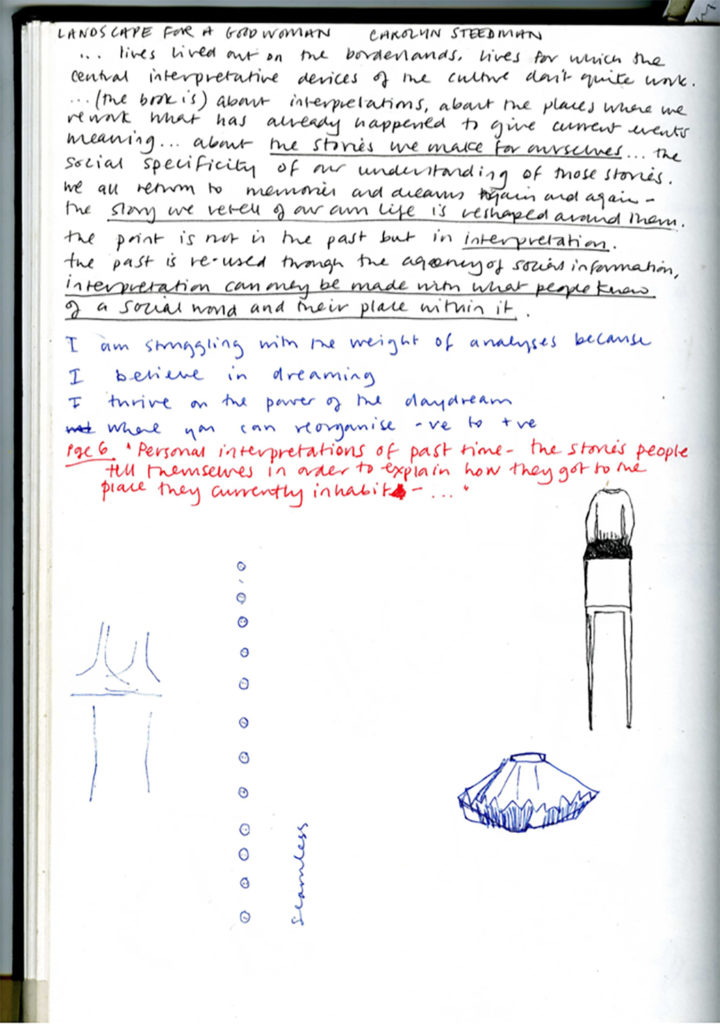 LANDSCAPE FOR A GOOD WOMAN CAROLYN STEEDMAN
... lives lived out on the borderlands. lives for which the
central interpretative devices of the culture don't quite work.
... (the book is) about interpretations, about the places where we
rework what has already happened to give current events
meaning... about the stories we make for ourselves... the
social specificity of our understanding of those stories.
we all return to memories and dreams again and again -
the story we retell of our own life is reshaped around them.
the point is not in the past but in interpretation.
the past is re-used through the agency of social information,
interpretation can only be made with what people know
of a social world and their place within it.
I am struggling with the weight of analyses because
I believe in dreaming
I thrive on the power of the daydream
where you can reorganise -ve to +ve
Pge 6. "Personal interpretations of past time - the stories people
tell themselves in order to explain how they got to the
place they currently inhabit - ... "
Seamless